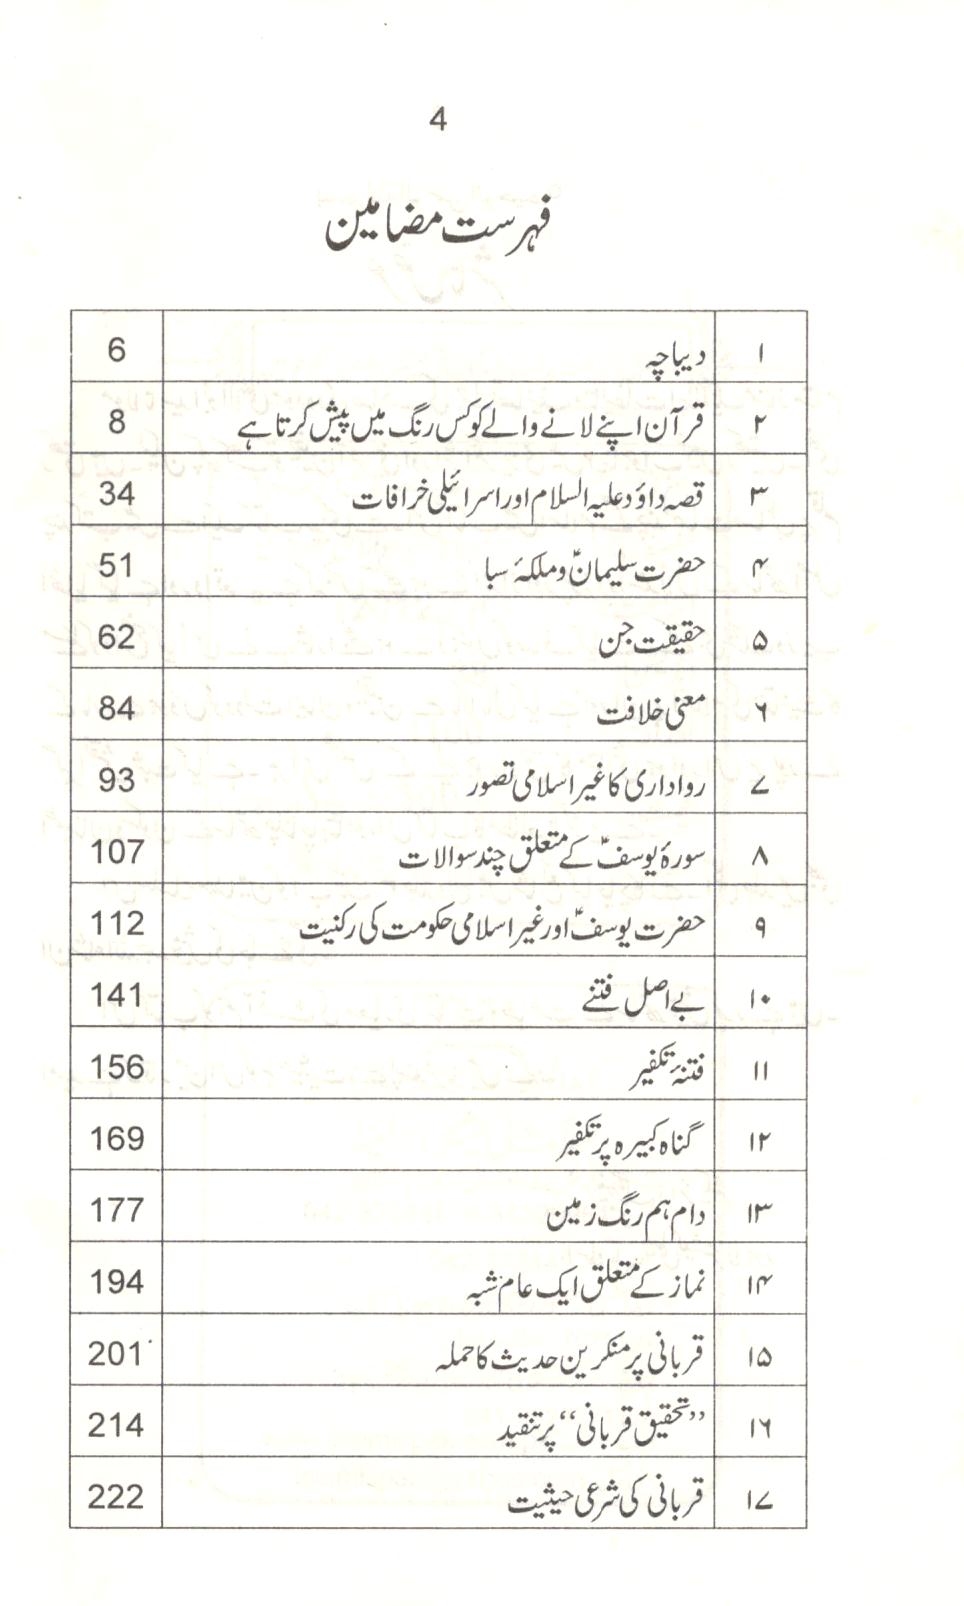 4
فہرست مضامین
۱ دیباچہ 6
۲ قرآن اپنے لانے والے کو کس رنگ میں پیش کرتا ہے 8
۳ قصہ داؤد علیہ السلام اور اسرائیلی خرافات 34
۴ حضرت سلیمانؑ و ملکۂ سبا 51
۵ حقیقت جن 62
۶ معنی خلافت 84
۷ رواداری کا غیر اسلامی تصور 93
۸ سورۂ یوسفؑ کے متعلق چند سوالات 107
۹ حضرت یوسفؑ اور غیر اسلامی حکومت کی رکنیت 112
۱۰ بے اصل فتنے 141
۱۱ فتنۂ تکفیر 156
۱۲ گناہ کبیرہ پر تکفیر 169
۱۳ دام ہم رنگ زمین 177
۱۴ نماز کے متعلق ایک عام شبہ 194
۱۵ قربانی پر منکرین حدیث کا حملہ 201
۱۶ ’’تحقیق قربانی‘‘ پر تنقید 214
۱۷ قربانی کی شرعی حیثیت 222